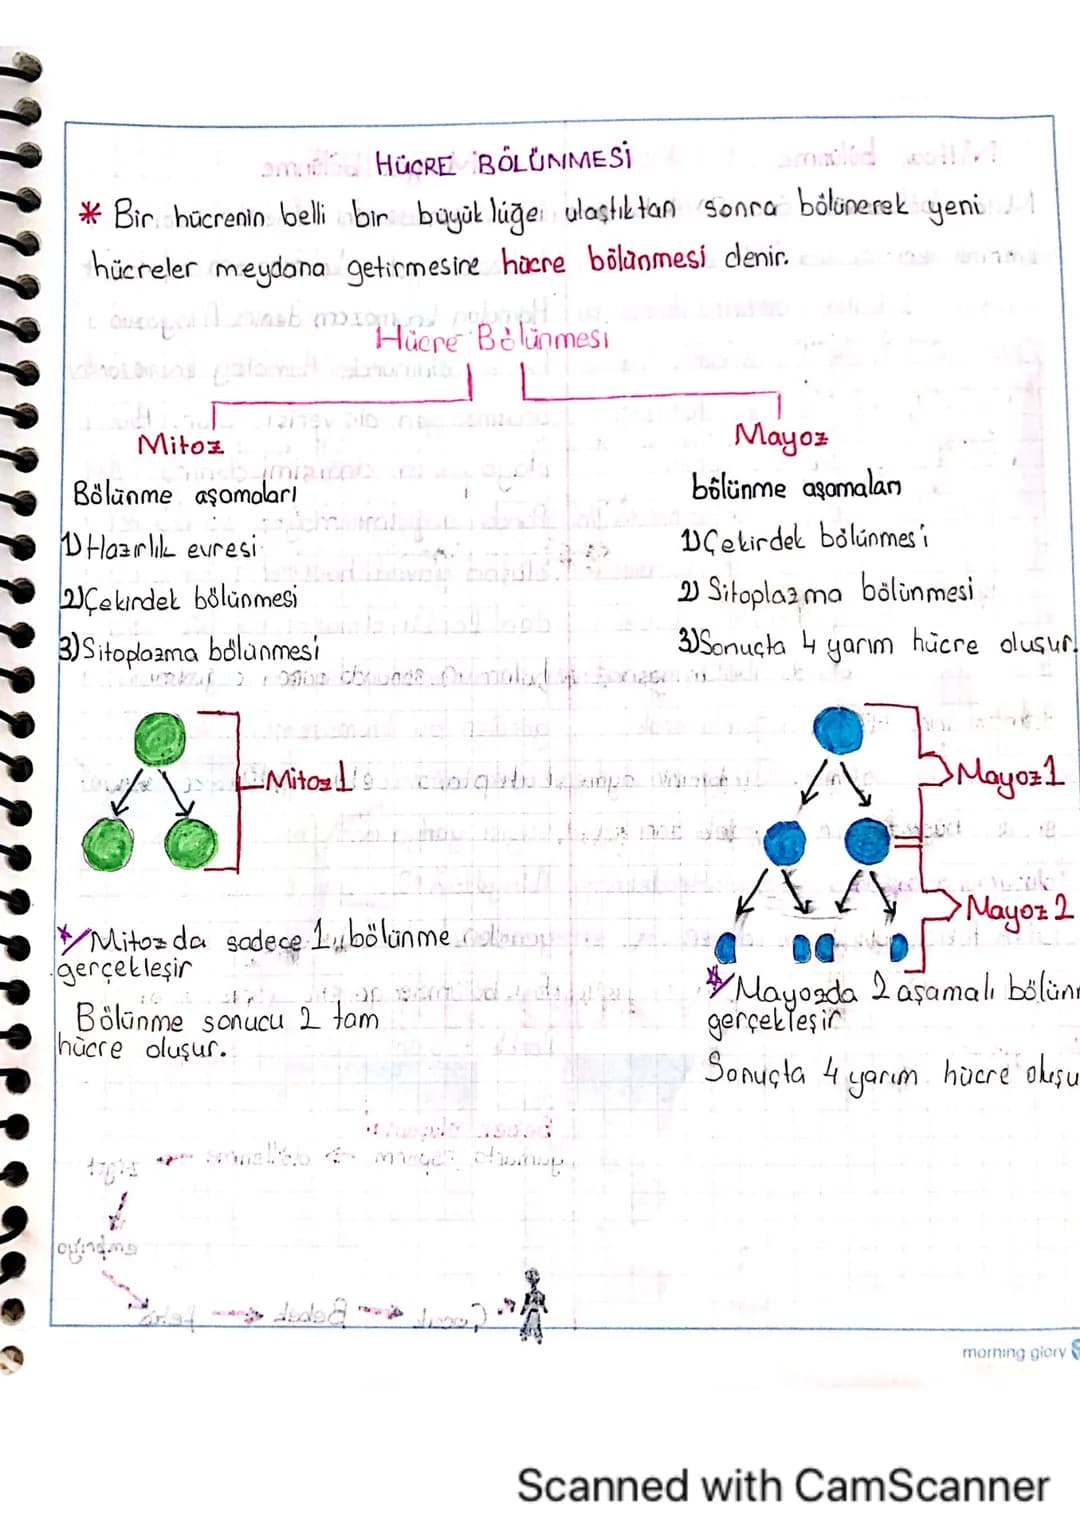 HÜCRE BÖLÜNMESİ
* Bir hücrenin belli bir büyüklüğe ulaştıktan sonra bölünerek yeni
hücreler meydana getirmesine hücre bölünmesi denir.
Hücre Bölünmesi
Mitoz
Bölünme aşamaları
1) Hazırlık evresi
2) Çekirdek bölünmesi
3) Sitoplazma bölünmesi
Mitoz 1
* Mitoz da sadece 1 bölünme
gerçekleşir
Bölünme sonucu 2 tam
hücre oluşur.
Mayoz
bölünme aşamaları
1) Çekirdek bölünmes'i
2) Sitoplazma bölünmesi
3) Sonuçta 4 yarım hücre oluşur.
Mayoz 1
Mayoz 2
* Mayozda 2 aşamalı bölün
gerçekleşir
Sonuçta 4 yarım hücre oluşu
morning glory
Scanned with CamScanner